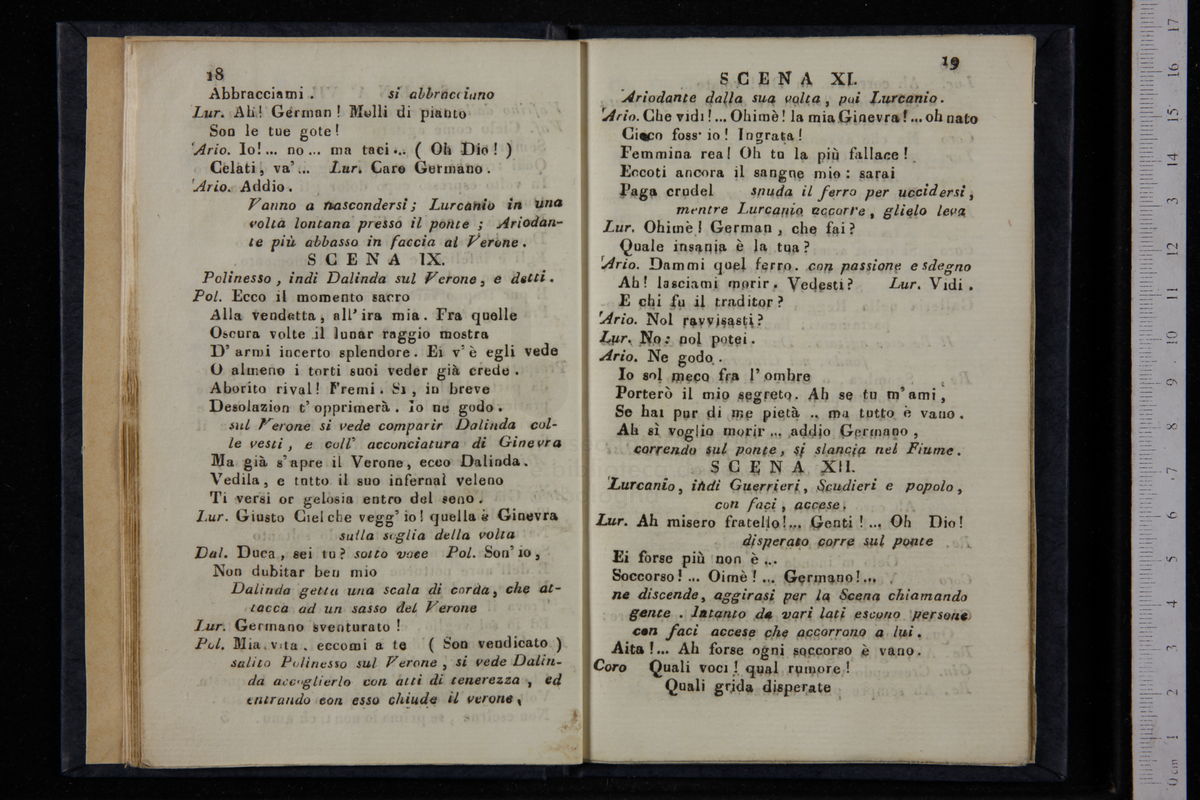 18
Abbracciami . si abbracciano
Lur. Ah! German ! Molli di pianto
Son le tue gote!
Ario. Io!... no ... ma taci ... ( Oh Dio ! )
Celati, va' ... Lur. Caro Germano .
Ario. Addio .
Vanno a nascondersi ; Lurcanio in una
volta lontana presso il ponte ; Ariodan-
te più abbasso in faccia al Verone .
SCENA IX.
Polinesso , indi Dalinda sul Verone , e detti .
Pol. Ecco il momento sacro
Alla vendetta , all' ira mia . Fra quelle
Oscura volte il lunar raggio mostra
D' armi incerto splendore . Ei v' è egli vede
O almeno i torti suoi veder già crede .
Aborito rival ! Fremi . Sì , in breve
Desolazion t' opprimerà . Io ne godo .
sul Verone si vede comparir Dalinda col-
le vesti , e coll' acconciatura di Ginevra
Ma già s' apre il Verone , ecco Dalinda .
Vedila , e tutto il suo infernal veleno
Ti versi or gelosia entro del seno .
Lur. Giusto Ciel che vegg' io ! quella è Ginevra
sulla soglia della volta
Dal. Duca , sei tu ? sotto voce Pol. Son' io ,
Non dubitar ben mio
Dalinda getta una scala di corda , che at-
tacca ad un sasso del Verone
Lur. Germano sventurato !
Pol. Mia vita . eccomi a te ( Son vendicato )
salito Polinesso sul Verone , si vede Dalin-
da accoglierlo con atti di tenerezza , ed
entrando con esso chiude il verone ,
19
SCENA XI.
Ariodante dalla sua volta , poi Lurcanio .
Ario. Che vidi !... Ohimè ! la mia Ginevra !... oh nato
Cieco foss' io ! Ingrata !
Femmina rea ! Oh tu la più fallace !
Eccoti ancora il sangue mio : sarai
Paga crudel snuda il ferro per uccidersi ,
mentre Lurcanio accorre , glielo leva
Lur. Ohimè ! German , che fai ?
Quale insania è la tua ?
Ario. Dammi quel ferro . con passione e sdegno
Ah ! lasciami morir . Vedesti ? Lur. Vidi .
E chi fu il traditor ?
Ario. Nol ravvisasti ?
Lur. No : nol potei .
Ario. Ne godo .
Io sol meco fra l' ombre
Porterò il mio segreto . Ah se tu m' ami ,
Se hai pur di me pietà .. ma tutto è vano .
Ah sì voglio morir ... addio Germano ,
correndo sul ponte , si slancia nel Fiume .
SCENA XII.
Lurcanio , indi Guerrieri , Scudieri e popolo ,
con faci , accese .
Lur. Ah misero fratello !... Genti ! ... Oh Dio !
disperato corre sul ponte
Ei forse più non è ...
Soccorso ! ... Oimè ! ... Germano !...
ne discende , aggirasi per la Scena chiamando
gente . Intanto da vari lati escono persone
con faci accese che accorrono a lui .
Aita !... Ah forse ogni soccorso è vano .
Coro Quali voci ! qual rumore !
Quali grida disperate